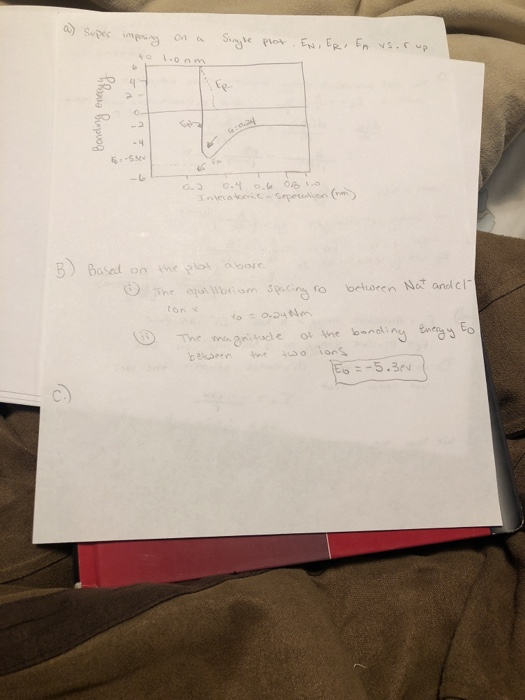 a) Super imposing on a Single plot. EN, ER, EA vs. r up
to 1.0 nm
Bonding energy
6
4
2
0
-2
-4
-6
ER
0.2 0.4 0.6 0.8 1.0
Interatomic - Seperation (nm)
B) Based on the plot above
(i) The equilibriom spacing ro between Na+ and cl-
ion
ro = 0.24 Nm
(ii) The magnitude of the bonding Energy Eo
between the two ions
Eo = -5.3ev
C.)